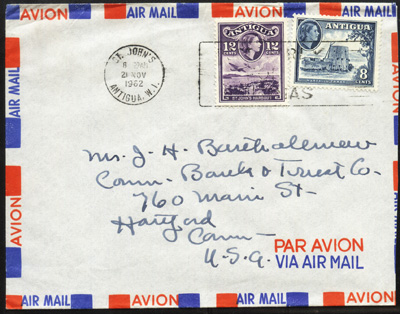 AVION AIR MAIL AVION AIR MAIL AVION AIR MAIL
ST. JOHN'S
21 NOV
1962
ANTIGUA. W.I.
ANTIGUA
12 CENTS 12 CENTS
ST. JOHN'S HARBOUR
ANTIGUA
8
CENTS
AS
Mr. J. H. Bartholomew
Conn. Bank & Trust Co.
760 Main St.
Hartford
Conn.
U.S.A.
PAR AVION
VIA AIR MAIL
AIR MAIL
AVION
AIR MAIL
AVION
AIR MAIL AVION AIR MAIL AVION AIR MAIL AVION